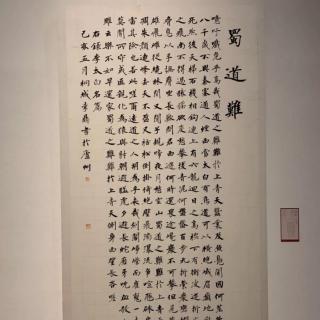 蜀道難
噫吁戲危乎高哉蜀道之難難於上青天蠶叢及魚鳧開國何茫
八千歲不與秦塞通人煙西當太白有鳥道可以橫絕峨眉巔地崩
死然後天梯石棧相鉤連上有六龍回日之高標下有衝波逆折
之飛而不得過猿猱欲度愁攀援青泥何盤盤百步九折縈巖巒
脅息以手撫膺坐長歎問君西遊何時還畏途巉巖不可攀但見
雄飛雌從繞林間又聞子規啼夜月愁空山蜀道之難難於上青天
凋朱顏連峰去天不盈尺枯松倒掛倚絕壁飛湍瀑流爭喧豗砯
其險也若此嗟爾遠道之人胡為乎來哉劍閣崢嶸而崔嵬一夫
莫開所守或匪親化為狼與豺朝避猛虎夕避長蛇磨牙吮血殺
雖云樂不如早還家蜀道之難難於上青天側身西望長咨嗟
右錄李太白名篇
己亥五月桐城李書於廬州